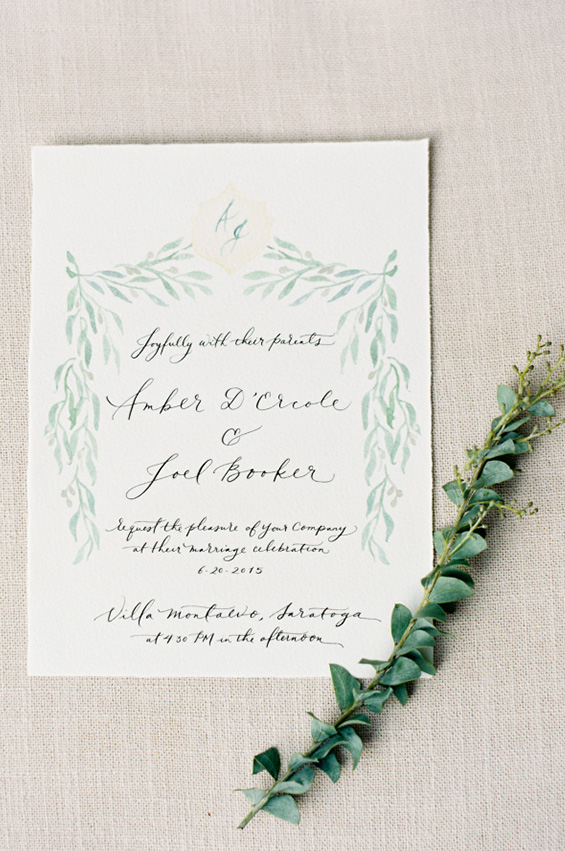 AJ
Joyfully with their parents
Amber D'Ercole
&
Joel Booker
request the pleasure of your Company
at their marriage celebration
6-20-2015
Villa Montalvo, Saratoga
at 4:30 PM in the afternoon